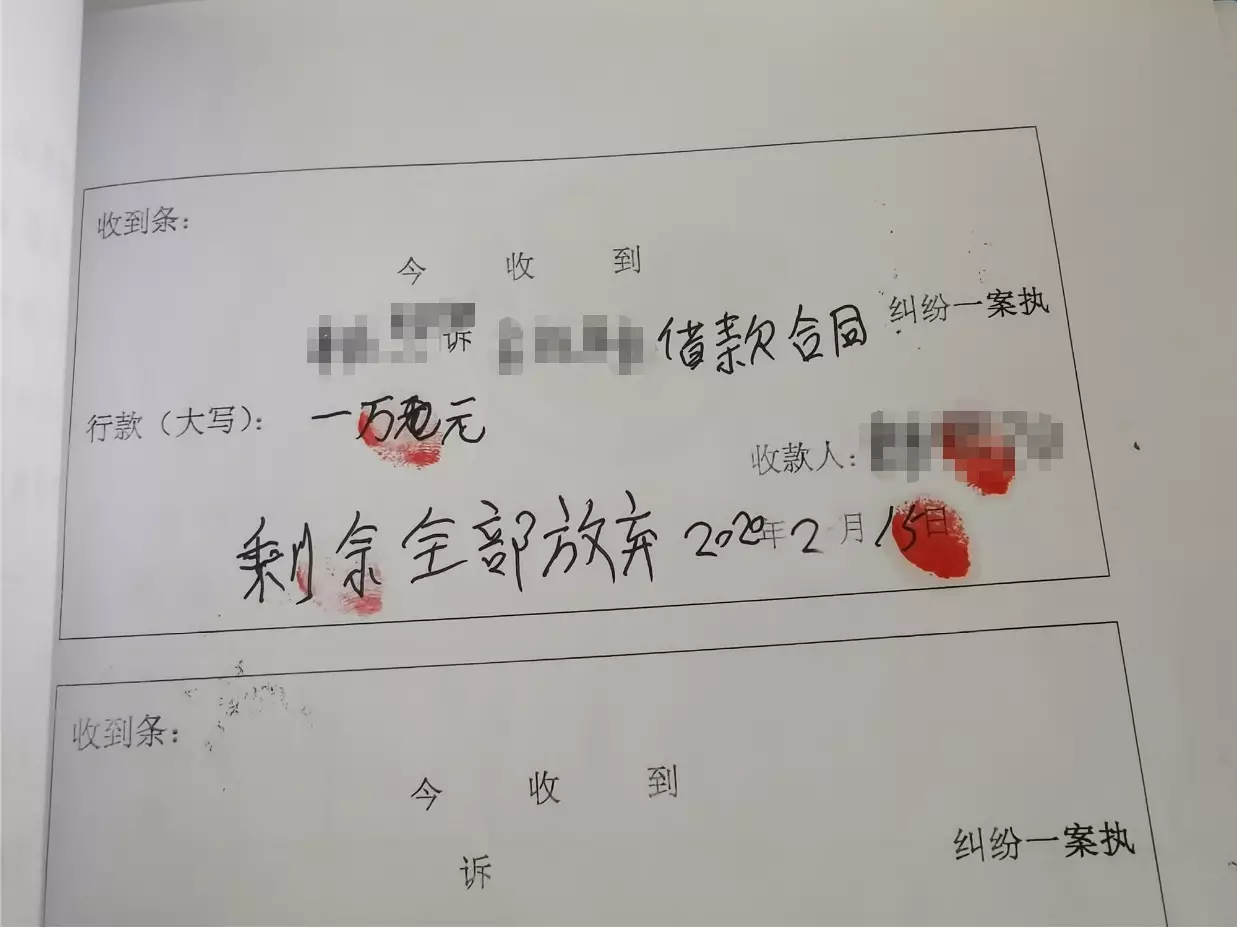 收到条：
今 收 到
诉 借款合同 纠纷一案执
行款（大写）： 一万 元
收款人：
剩余全部放弃 2020年2月15日
收到条：
今 收 到
诉 纠纷一案执